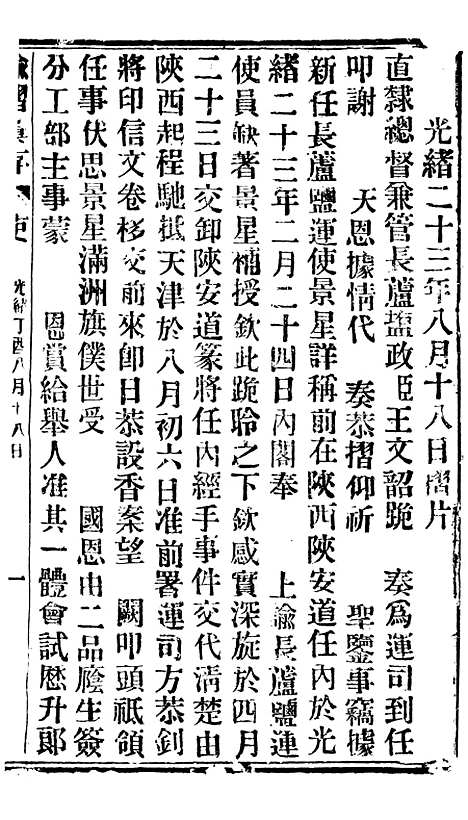 光緒二十三年八月十八日摺片
直隸總督兼管長蘆鹽政臣王文韶跪　奏爲運司到任
叩謝　天恩據情代　奏恭摺仰祈　聖鑒事竊據
新任長蘆鹽運使景星詳稱前在陝西陝安道任內於光
緒二十三年二月二十四日內閣奉　上諭長蘆鹽運
使員缺著景星補授欽此跪聆之下欽感實深旋於四月
二十三日交卸陝安道篆將任內經手事件交代淸楚由
陝西起程馳抵天津於八月初六日准前署運司方恭釗
將印信文卷移交前來卽日恭設香案望　闕叩頭祇領
任事伏思景星滿洲旗僕世受　國恩由二品廕生簽
分工部主事蒙　恩賞給舉人准其一體會試歷升郞
諭摺彙存　光緒丁酉八月十八日　一